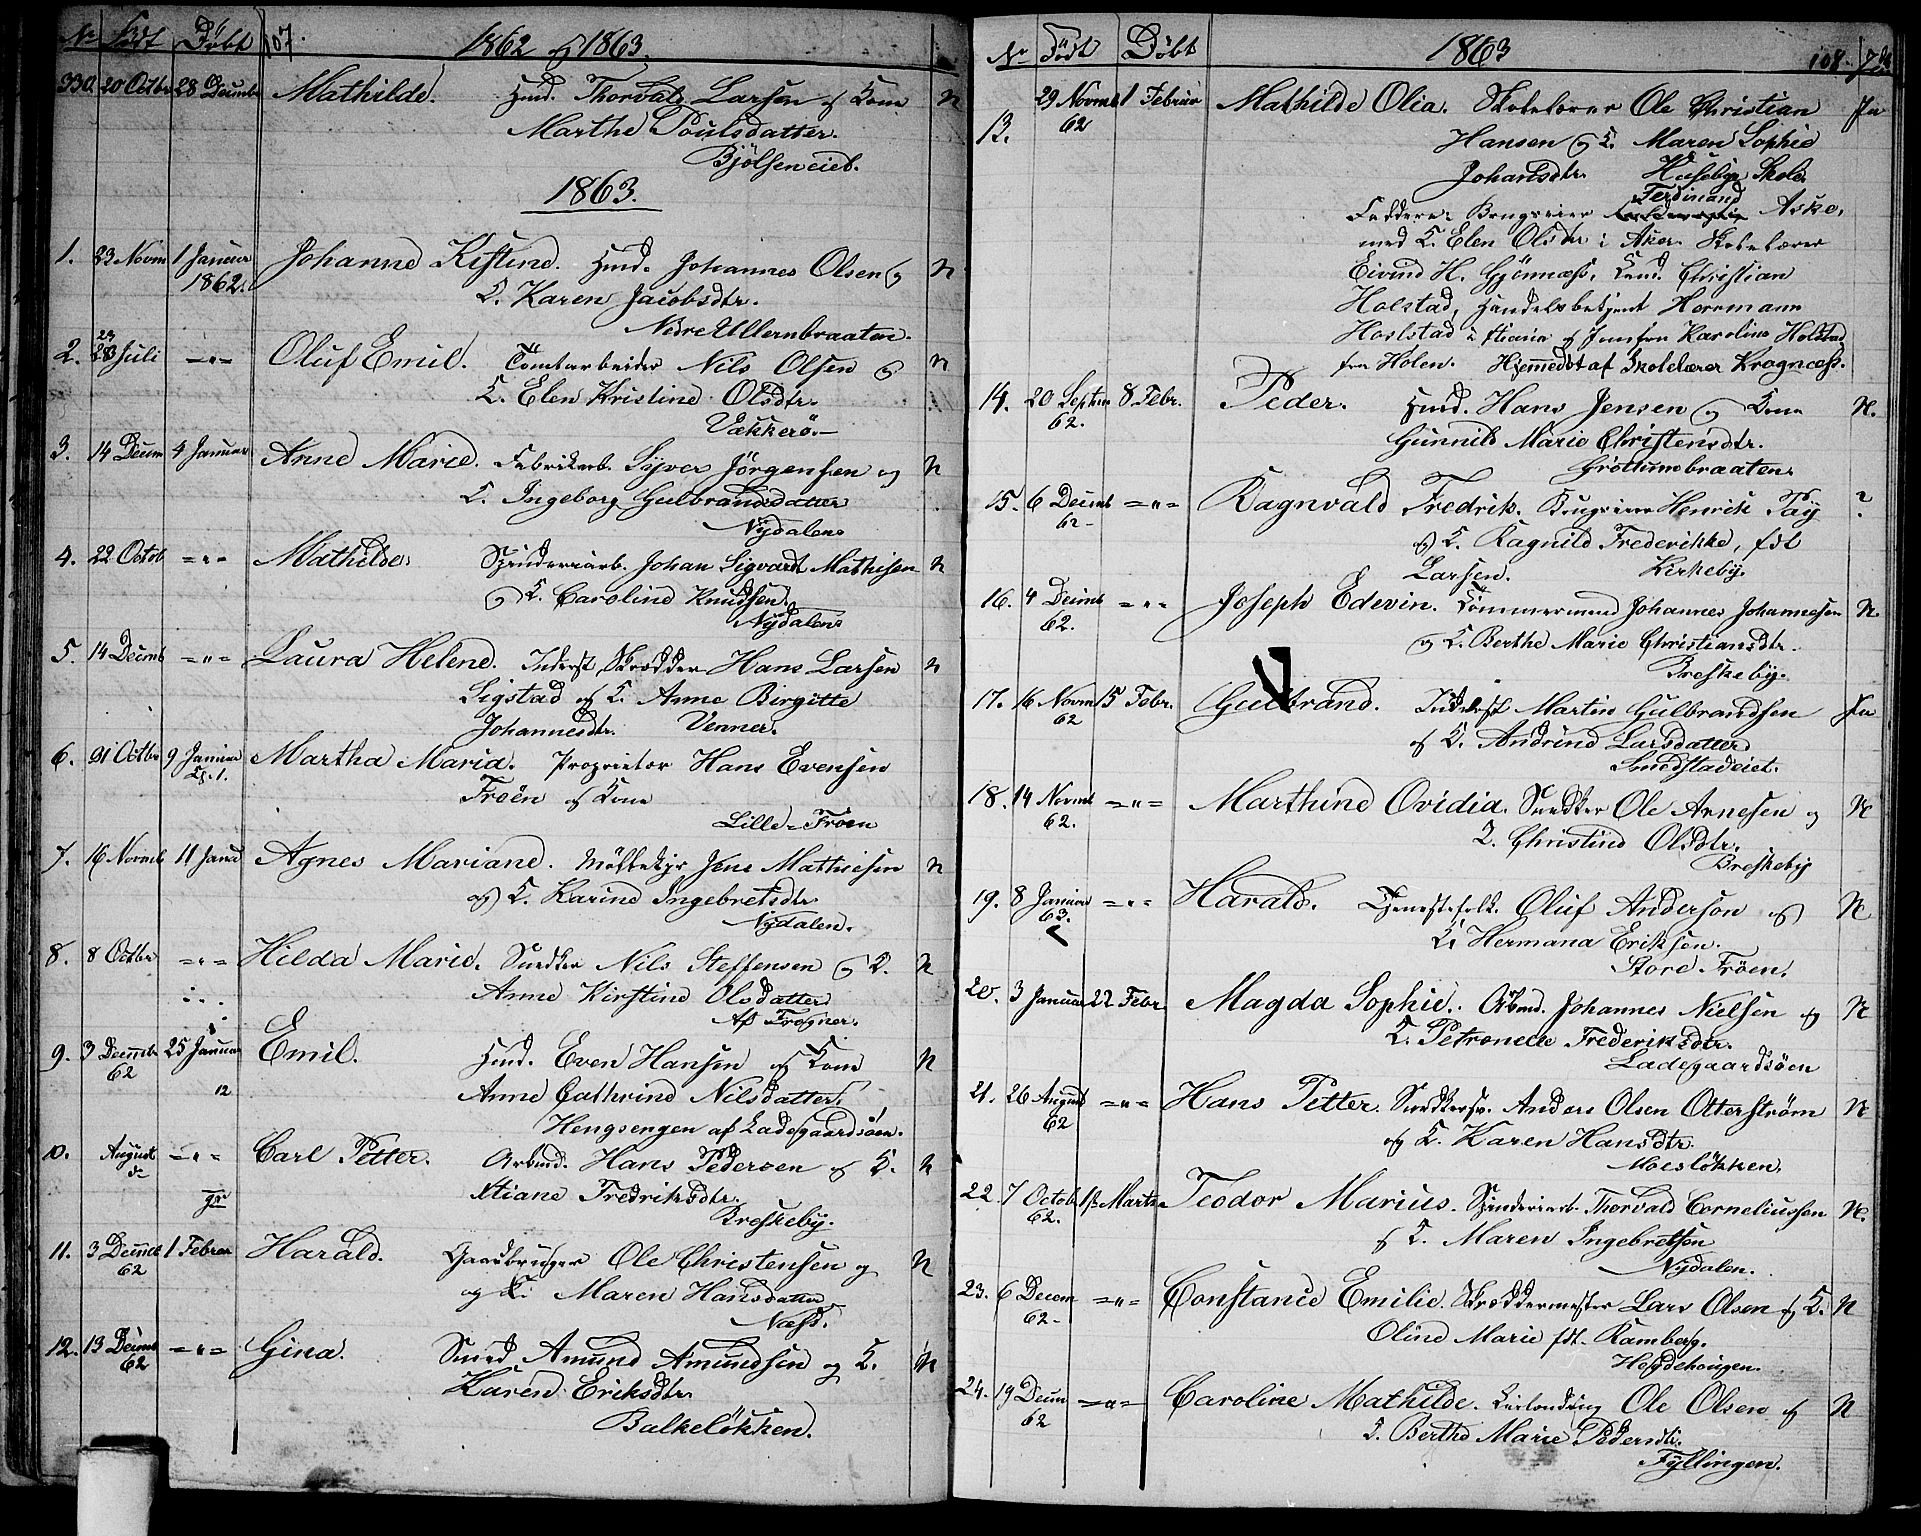 Nr Født Døbt 107. 1862 og 1863.
330. 20 Octbr 28 Decembr Mathilde. Husmd. Thorvald Larsen og Kone N
Marthe Poulsdatter.
Bjölseneiet.
1863.
1. 23 Novm 1 Januar Johanne Kistine. Husmd. Johannes Olsen og N
1862. K. Karen Jacobsdtr.
Nedre Ullernbraaten.
2. 23 Juli —"— Oluf Emil. Tomtarbeider Nils Olsen og N
K. Elen Kristine Olsdtr.
Vækkerö.—
3. 14 Decem 4 Januar Anne Marie. Fabrikarb. Syver Jörgensen og N
K. Ingeborg Gulbrandsdatter
Nydalen
4. 22 Octob ="= Mathilde. Spinderiarb. Johan Sigvardt Mathisen N
og K. Caroline Knudsen.
Nydalen
5. 14 Decemb ="= Laura Helene. Inderst Skrædder Hans Larsen N
Sigstad og K. Anne Birgitte
Johannesdtr. Venner.
6. 21 Octbr 9 Januar Martha Maria. Proprietær Hans Evensen
Fröen og Kone
Lille=Fröen
7. 16 Novmb 11 Janu Agnes Mariane. Jens Mathiesen N
og K. Karine Ingebretsdtr.
Nydalen.
8. 8 Octbr ="= Hilda Marie. Snedker Nils Steffensen og K. N
Anne Kirstine Olsdatter
Af Frogner.
9. 3 Decemb 25 Januar Emil. Husmd. Even Hansen og Kone N
62 Anne Cathrine Nilsdatter.
12 Hengsengen af Ladegaardsöen.
10. August ="= Carl Petter. Arbmd. Hans Pedersen og K. N
Stiane Fredriksdtr.
Breskeby.
11. 3 Decmb 1 Februar Harald. Gaardbruger Ole Christensen og N
62 og K. Maren Hansdatter
Næss.
12. 13 Decmb ="= Gina. Smed Amund Amundsen og K. N
62 Karen Eriksdtr.
Balkelökken.
Nr Født Döbt 1863 108.
13. 29 Novmb 1 Februar Mathilde Olia. Skolelærer Ole Christian Ja
62 Hansen og K. Maren Sophie
Johansdtr. Huseby Skole
Ferdinand
Faddere: Brugseier Aske,
med K. Elen Olsdtr i Aker. Skolelærer
Eivind H. Gjönnæss, Christian
Holstad, Handelsbetjent Herrmann
Holstad i Xtiania og Jomfru Karoline Holstad
fra Holen. Hjemmedöbt af Skolelærer Krognæss.
14. 20 Septm 8 Febr. Peder. Husmd. Hans Jensen og Kone N.
62. Gunnild Marie Christensdtr.
Gröttumbraaten.
15. 6 Decmb ="= Ragnvald Fredrik. Brugseier Henrik Pay ?
62- og K. Ragnild Frederikke, föt
Larsen. Kirkeby.
16. 4 Decmb ="= Joseph Edevin. Tömmermand Johannes Johannesen N.
62. og K. Berthe Marie Christiansdtr.
Breskeby.
17. 16 Novm 15 Febr. Gulbrand. Inderst Martin Gulbrandsen Ja
62 og K. Andrine Larsdatter
Smedstadeiet.
18. 14 Novmb ="= Marthine Ovidia. Snedker Ole Arnesen og N
62. K. Christine Olsdtr.
Breskeby
19. 8 Januar ="= Harald. Tjenestefolk. Oluf Anderson og N
63. K. Hermana Eriksen.
Store Fröen.
20. 3 Januar 22 Febr. Magda Sophie. Arbmd. Johannes Nielsen og N
K. Petronelle Frederiksdtr.
Ladegaardsöen
21. 26 August ="= Hans Petter. Snedkersv. Anders Olsen Otterström N
62 og K. Karen Hansdtr.
Moeslökken.
22. 7 Octob 1ste Marts Teodor Marius. Spinderiarb. Thorvald Corneliussen N.
62. og K. Maren Ingebretsen
Nydalen.
23. 6 Decem ="= Constance Emilie. Skræddermester Lars Olsen og K. N
62- Oline Marie föt. Ramberg.
Hegdehougen.
24. 19 Decem ="= Caroline Mathilde. Ole Olsen og N
62 K. Berthe Marie Pedersdtr.
Fyllingen.